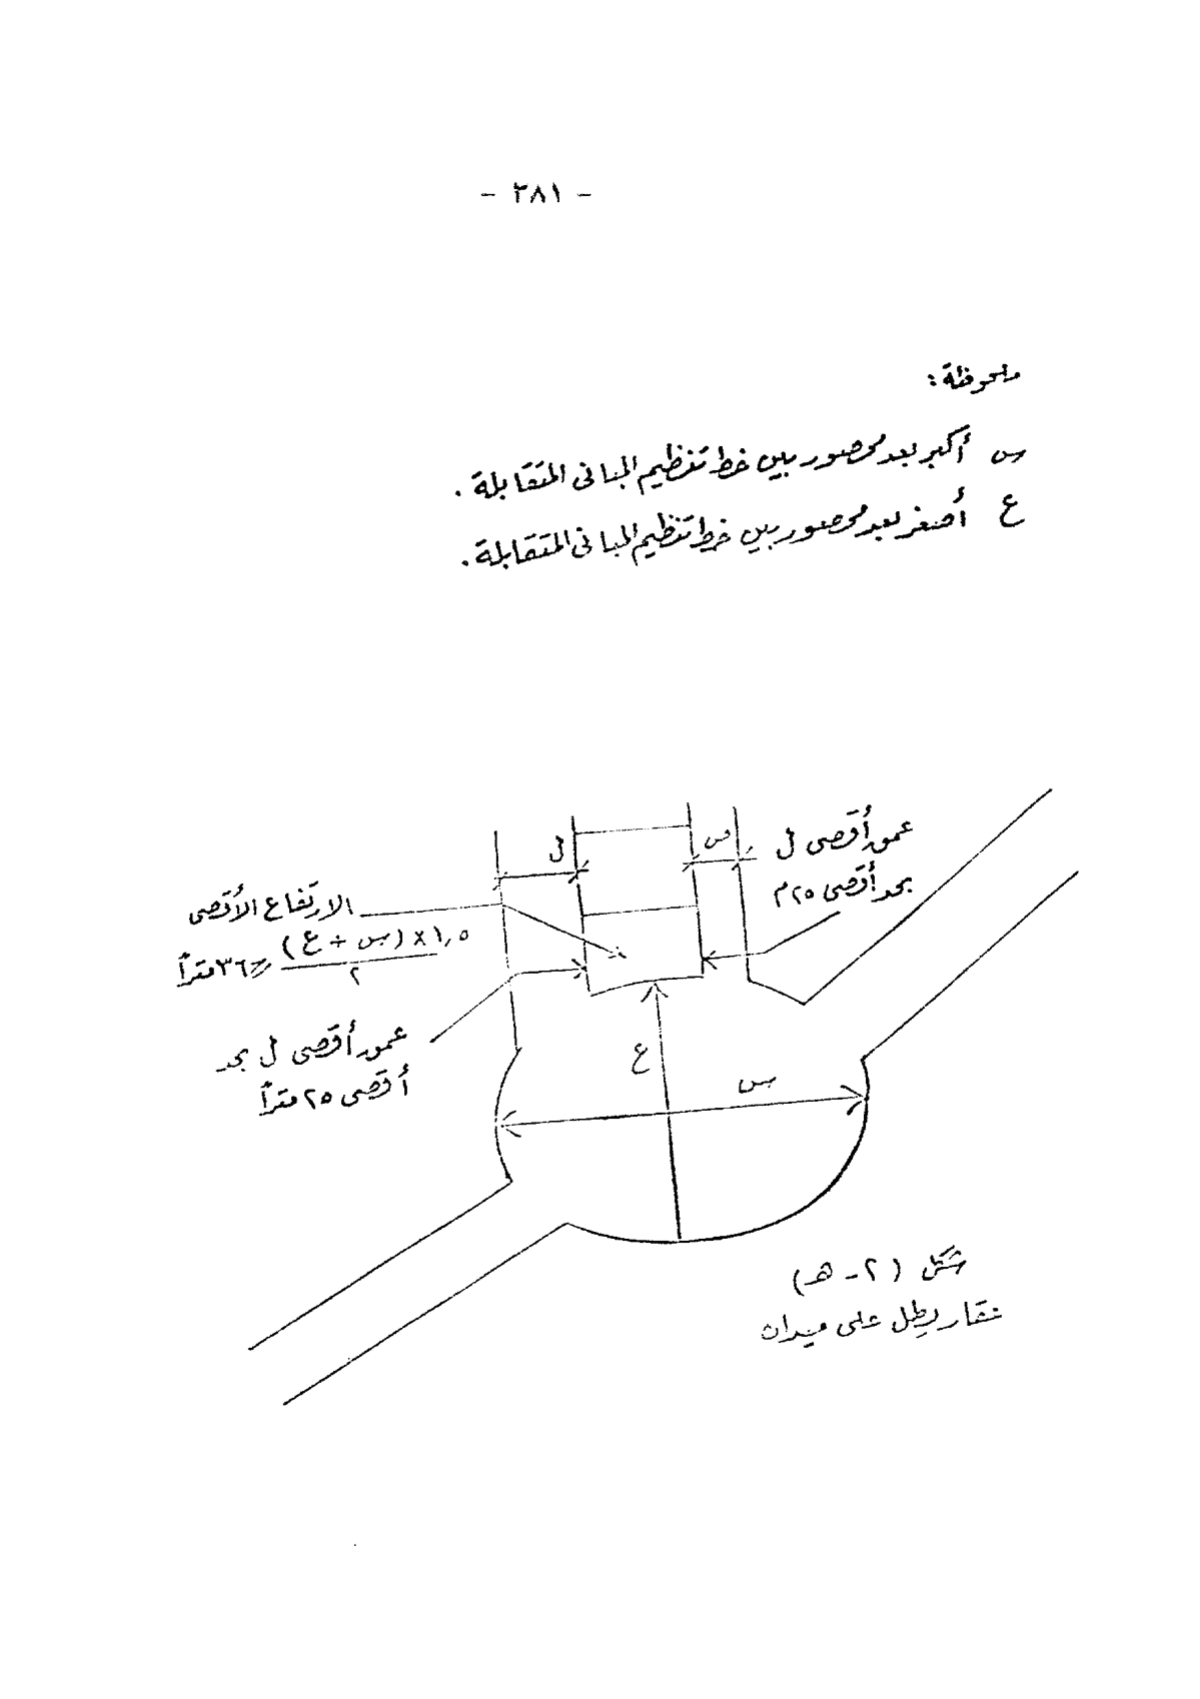 - ٣٨١ -
ملحوظة :
س أكبر بعد محصور بين خط تنظيم المبانى المتقابلة .
ع أصغر بعد محصور بين خط تنظيم المبانى المتقابلة .
ل
س
عمق أقصى ل
بحد أقصى ٢٥ م
الارتفاع الأقصى
١,٥ × (س + ع)
٢
≯ ٣٦ متراً
عمق أقصى ل بحد
أقصى ٢٥ متراً
ع
س
شكل ( ٢ - هـ )
عقار يطل على ميدان